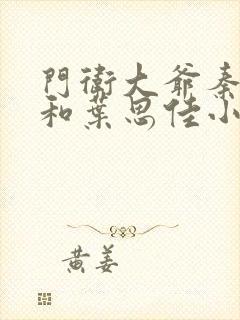 門衛大爺秦
和葉思佳小
黃姜